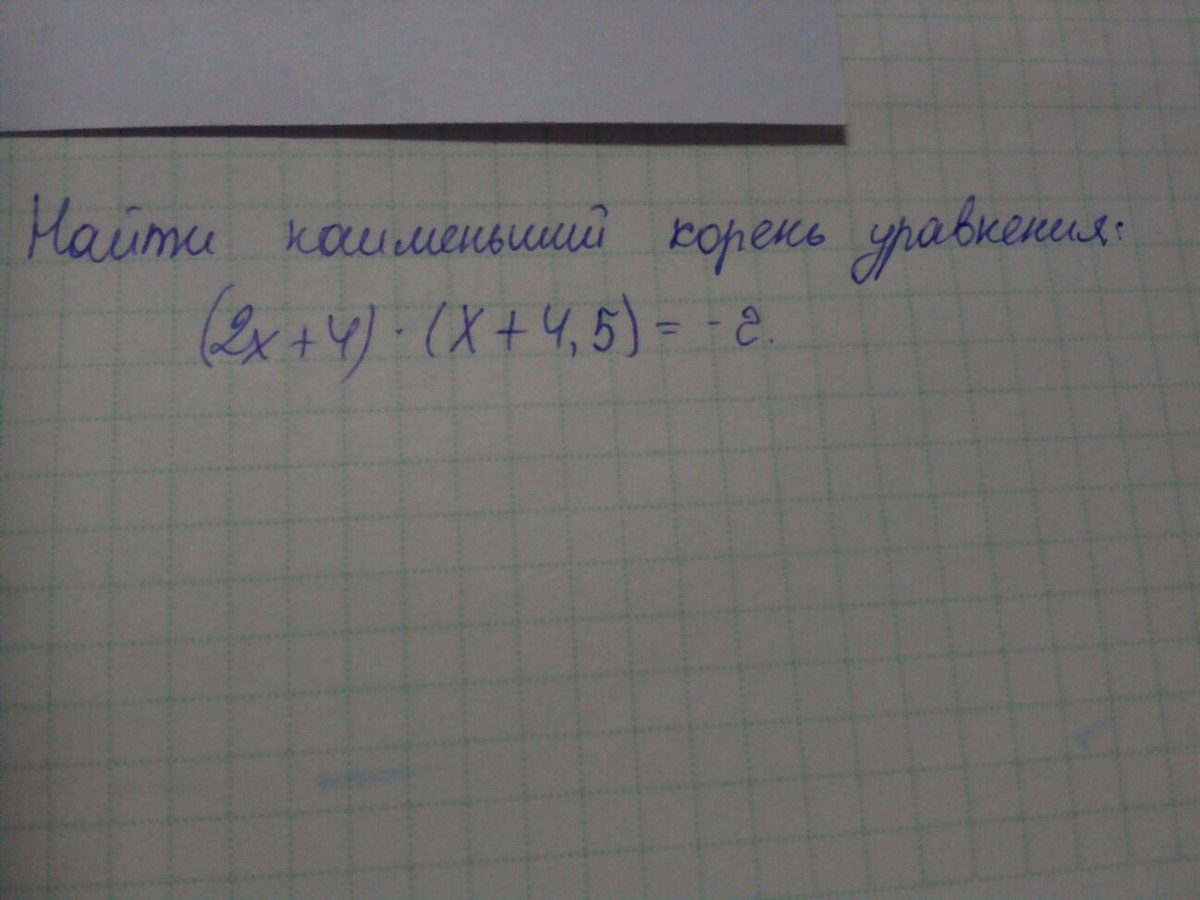 Найти наименьший корень уравнения:
(2x+4)·(x+4,5)= -2.